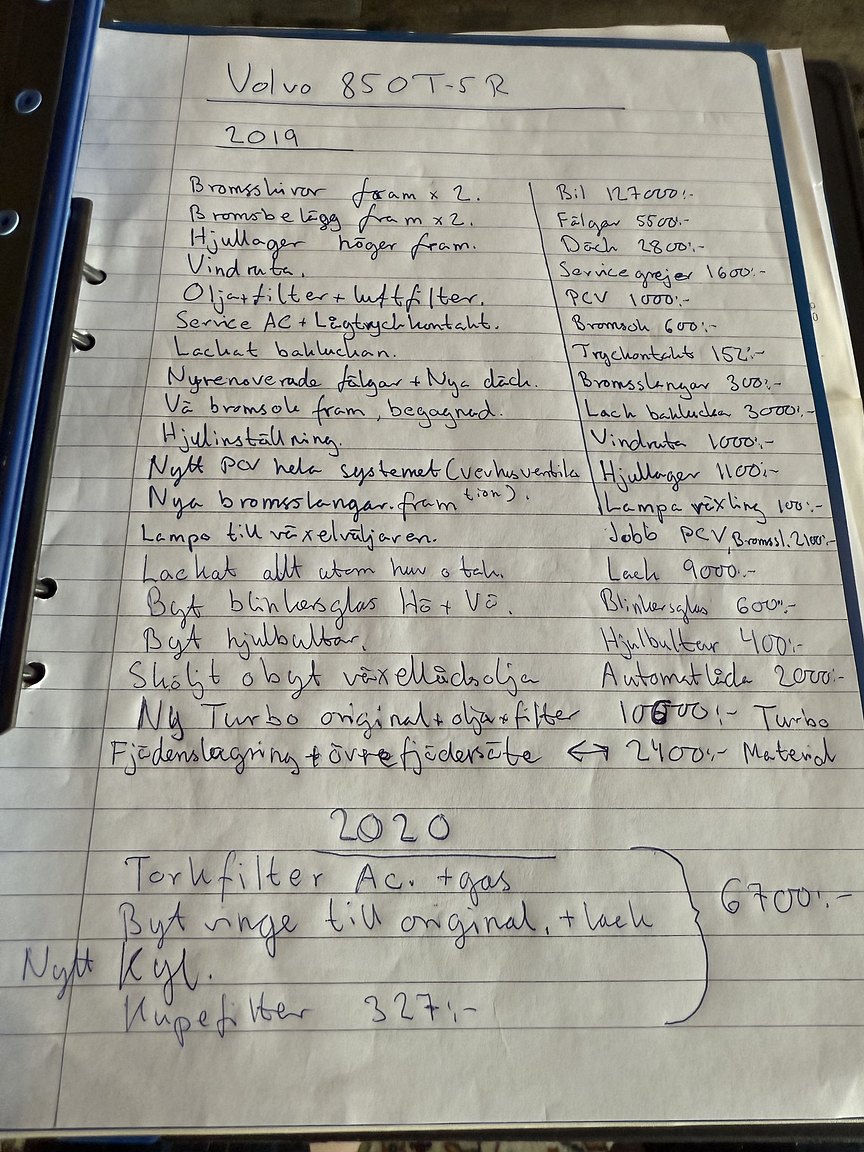 Volvo 850T-5R
2019
Bromsskivor fram x 2. Bil 127000:-
Bromsbelägg fram x2. Fälgar 5500:-
Hjullager höger fram. Däck 2800:-
Vindruta. Service grejer 1600:-
Olja+filter + luftfilter. PCV 1000:-
Service AC + Lågtryckkontakt. Bromsok 600:-
Lackat bakluckan. Tryckontakt 152:-
Nyrenoverade fälgar + Nya däck. Bromsslangar 300:-
Vä bromsok fram, begagnad. Lack baklucka 3000:-
Hjulinställning. Vindruta 1000:-
Nytt PCV hela systemet (vevhusventila Hjullager 1100:-
tion).
Nya bromsslangar.fram Lampa växling 100:-
Lampa till växelväljaren. Jobb PCV, Bromssl. 2100:-
Lackat allt utom huv o tak. Lack 9000:-
Byt blinkersglas Hö + Vä. Blinkersglas 600:-
Byt hjulbultar. Hjulbultar 400:-
Sköljt o byt växellådsolja Automatlåda 2000:-
Ny Turbo original + olja + filter 10600:- Turbo
Fjädenslagring + övre fjädersäte ↔ 2400:- Material
2020
Torkfilter Ac. +gas
6700:-
Byt vinge till original. + lack
Nytt Kyl.
Kupefilter 327:-